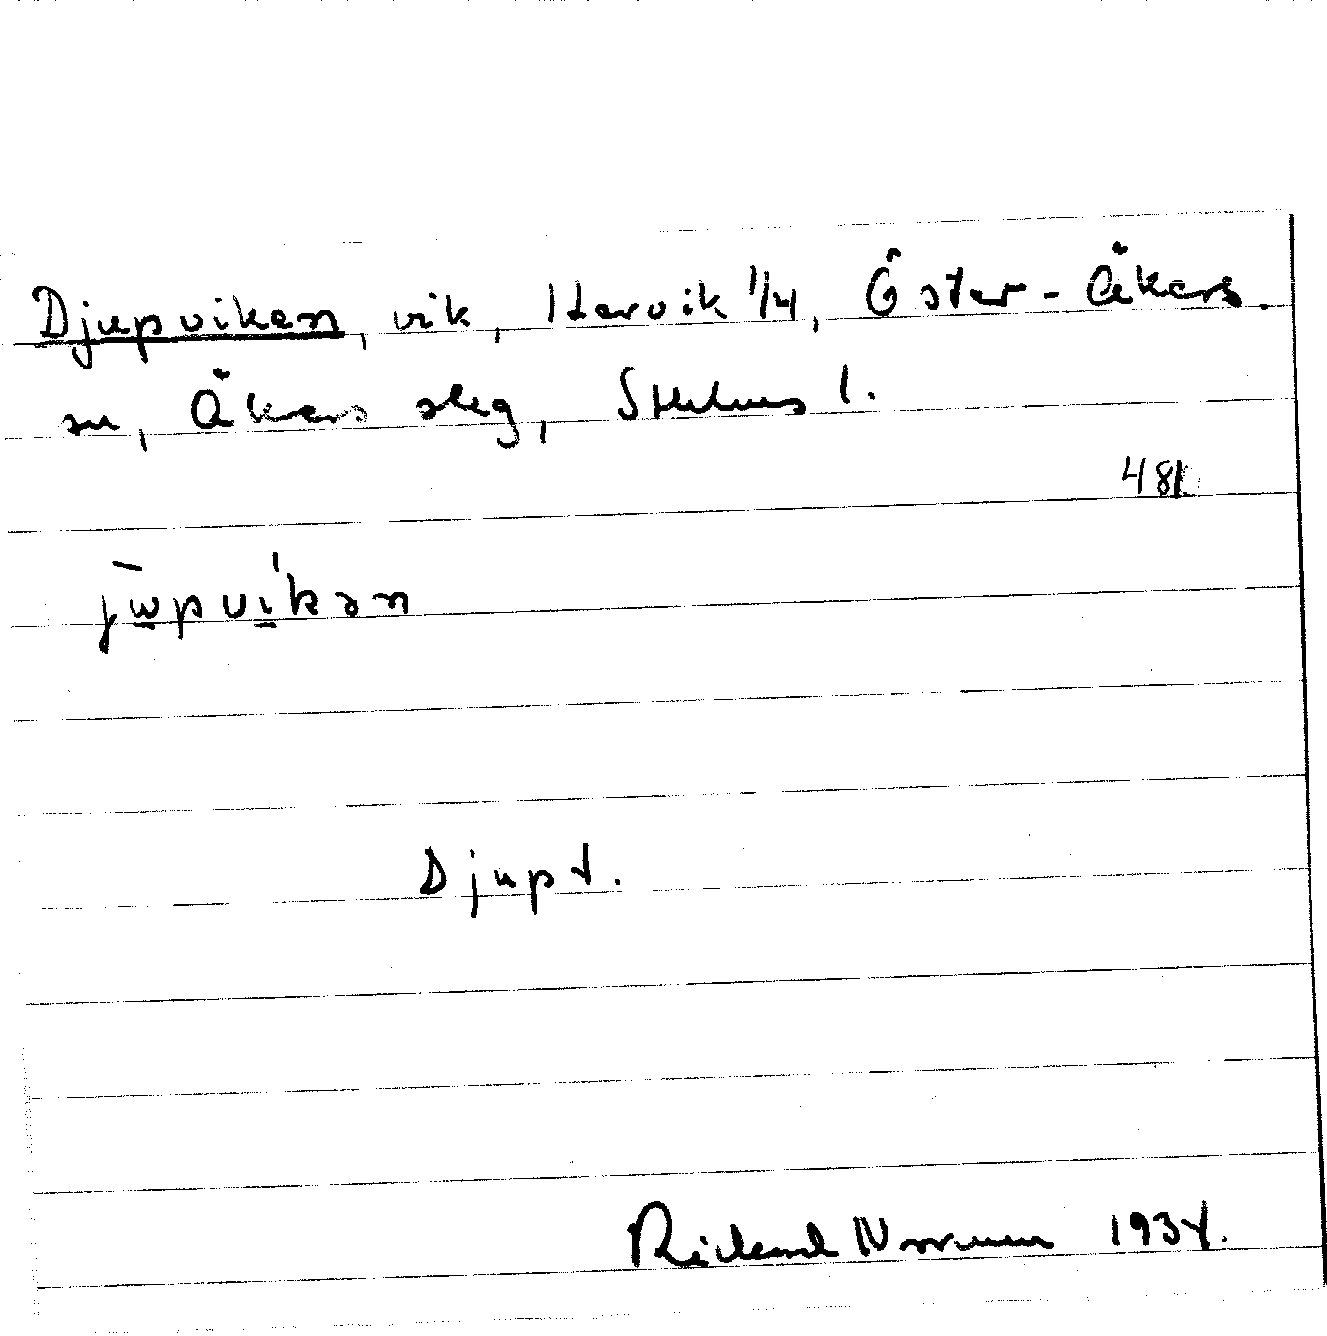 Djupviken, vik, Härsvik 1/4, Öster-Åkers
sn, Åkers skg, Sthlms l.
481
jupvikən
Djupt.
Rickard Norrman 1934.